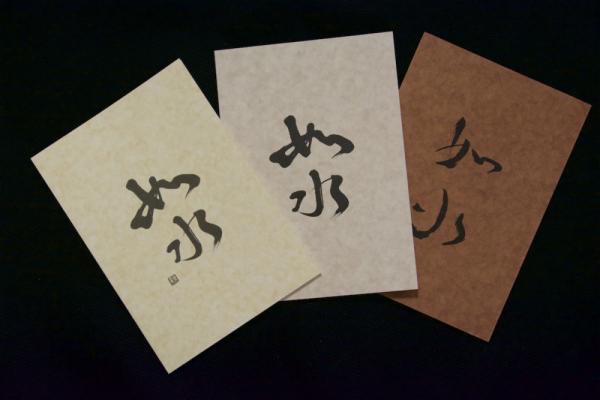 如水
如水
如水